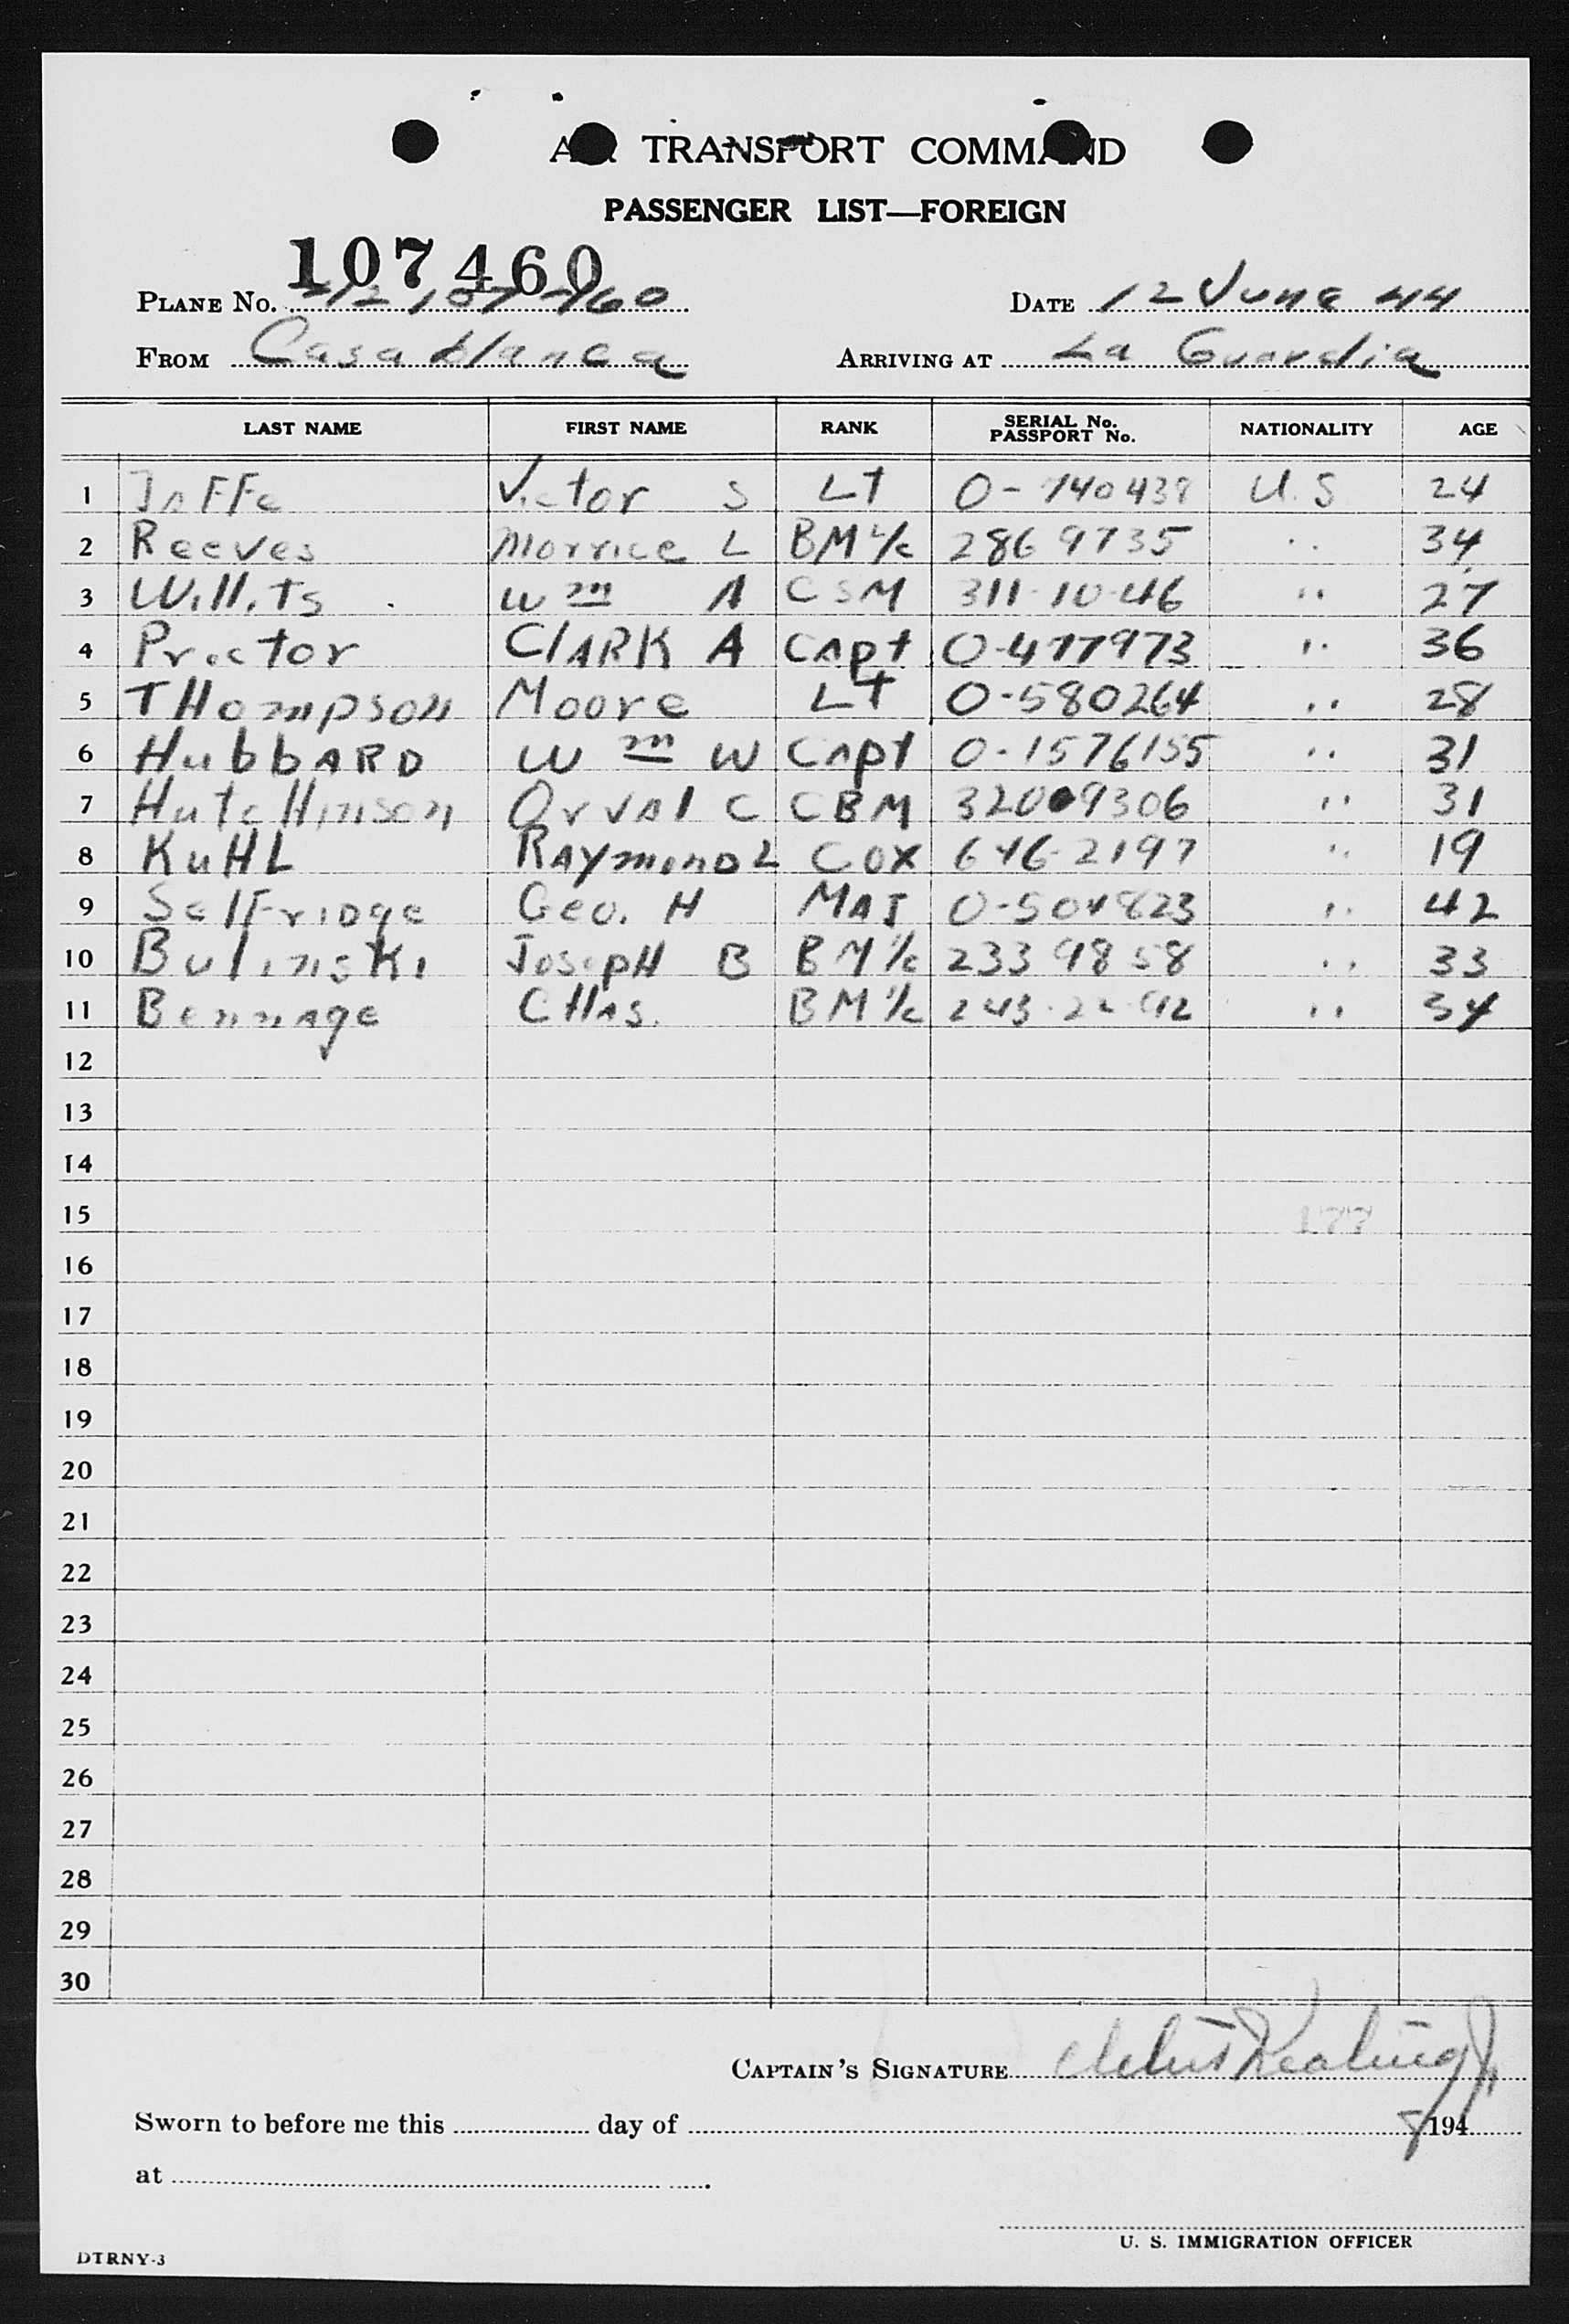 AIR TRANSPORT COMMAND
PASSENGER LIST—FOREIGN
107460
PLANE No. 107460 DATE 12 June 44
FROM Casablanca ARRIVING AT La Guardia
LAST NAME FIRST NAME RANK SERIAL No. PASSPORT No. NATIONALITY AGE
1 Jaffe Victor S LT O-740439 U.S 24
2 Reeves Morrice L BM 2/c 286 9735 " 34
3 Willits Wm A CSM 311-10-46 " 27
4 Proctor CLARK A Capt O-477973 " 36
5 THompson Moore LT O-580264 " 28
6 HubbARD Wm W Capt O-1576155 " 31
7 HutcHinson Orval C CBM 3209306 " 31
8 KuHL RAYmonD L COX 646-2197 " 19
9 SelfriDge Geo. H MAJ O-504823 " 42
10 BulinsKi JosepH B BM 1/c 233 98 58 " 33
11 Bennage CHas. BM 1/c 243-22-92 " 34
12
13
14
15 177
16
17
18
19
20
21
22
23
24
25
26
27
28
29
30
CAPTAIN'S SIGNATURE
Sworn to before me this day of 194
at
U. S. IMMIGRATION OFFICER
DTRNY-3